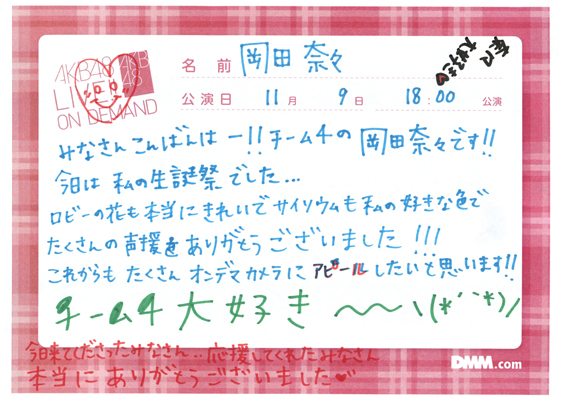 AKB48
LIVE!!
ON DEMAND
AKB
48
名 前 岡田 奈々
公演日 11月 9日 18:00 公演
みなさんこんばんはー!! チーム4の 岡田奈々です!!
今日は 私の生誕祭でした...
ロビーの花も本当にきれいでサイリウムも私の好きな色で
たくさんの声援をありがとうございました!!!
これからもたくさんオンデマカメラにアピールしたいと思います!!
チーム4 大好き 〜〜ヽ(*´`*)ノ
今日来てくださったみなさん..応援してくれたみなさん
本当にありがとうございました♡
DMM.com